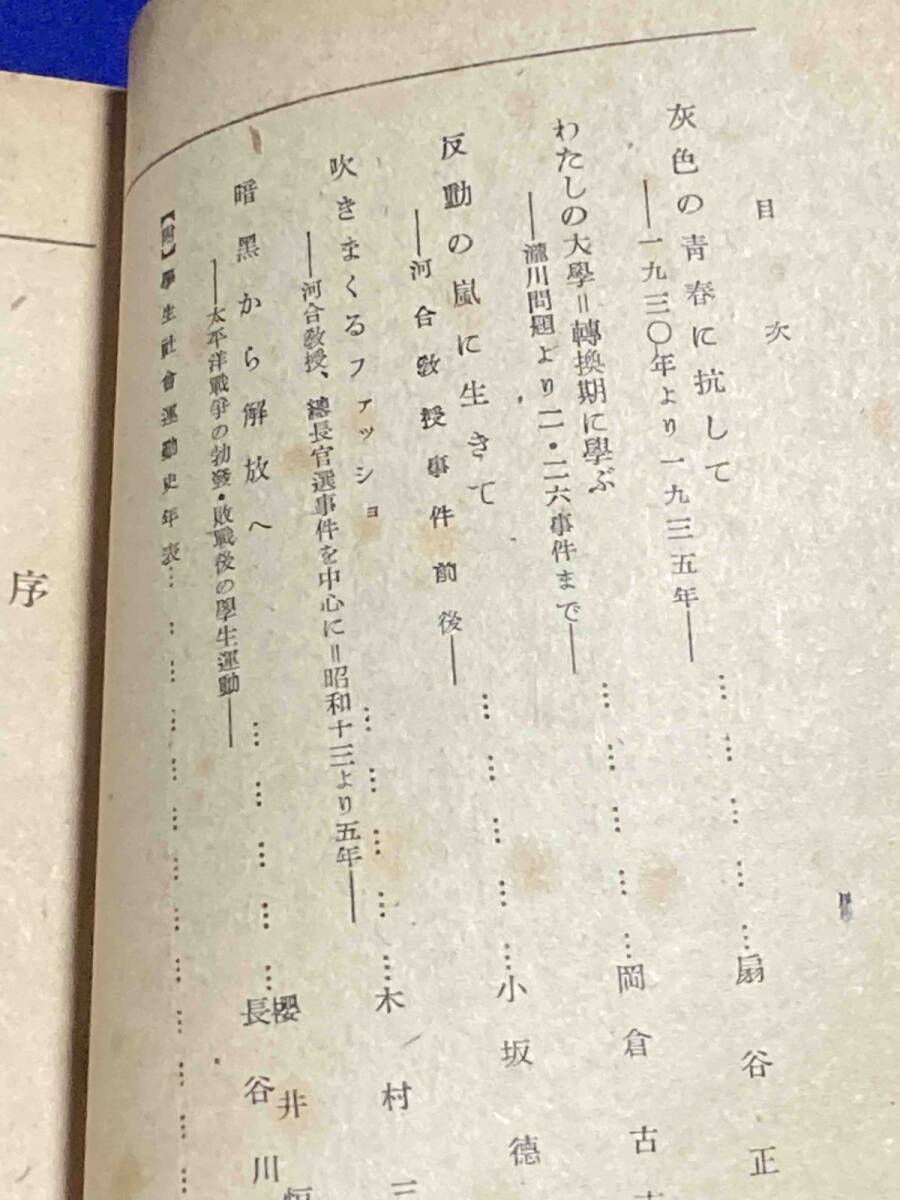 目次
灰色の青春に抗して
――一九三〇年より一九三五年――……………扇谷正
わたしの大學＝轉換期に學ぶ
――瀧川問題より二・二六事件まで――……………岡倉古
反動の嵐に生きて
――河合教授事件前後――……………小坂德
吹きまくるファッショ
――河合教授、總長官選事件を中心に＝昭和十三より五年――……………木村三
暗黑から解放へ
――太平洋戰爭の勃發・敗戰後の學生運動――……………櫻井恒
長谷川
【附】學生社會運動史年表……………
序